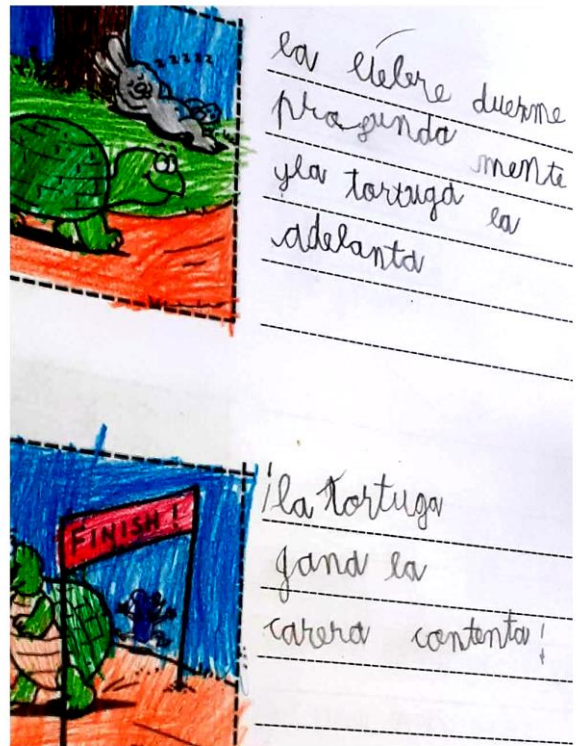 zzzzz
la liebre duerme
profunda mente
yla tortuga la
adelanta
FINISH!
¡la tortuga
gana la
carera contenta!